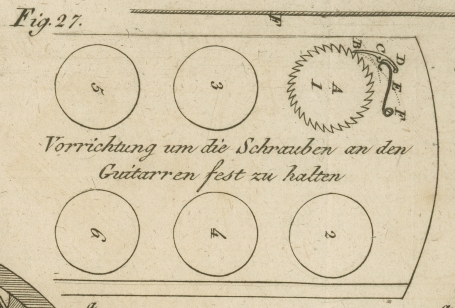 Fig. 27.
F
B
C
D
A
E
5
3
1
F
Vorrichtung um die Schrauben an den
Guitarren fest zu halten
6
4
2
a
a